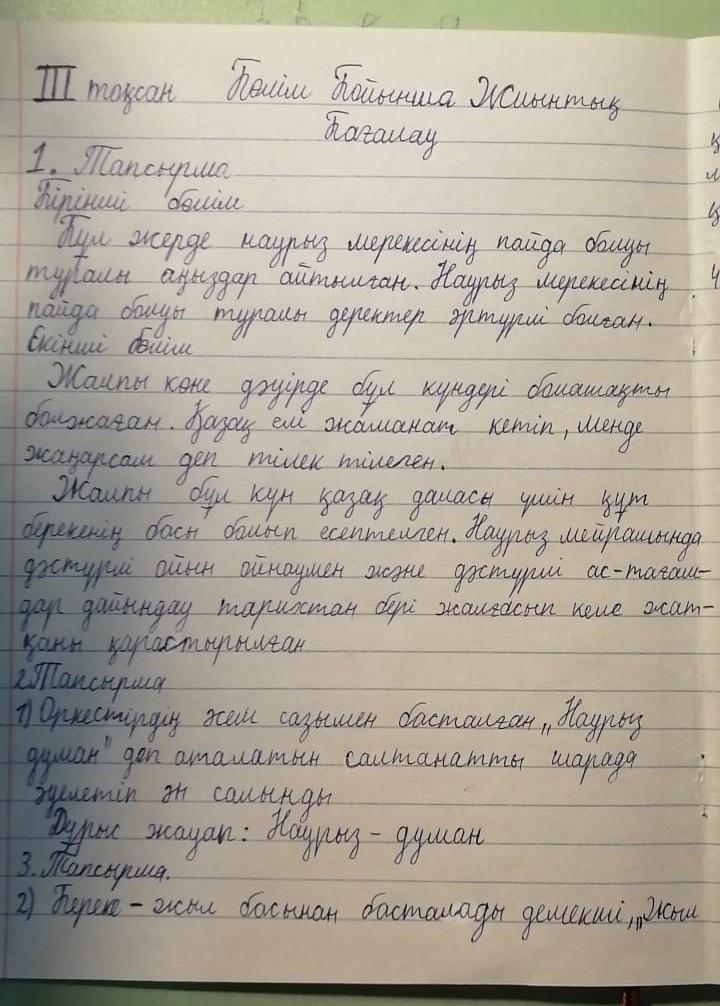 III тоқсан Бөлім Бойынша Жиынтық
Бағалау
1. Тапсырма
Бірінші бөлім
Бұл жерде наурыз мерекесінің пайда болуы
туралы аңыздар айтылған. Наурыз мерекесінің
пайда болуы туралы деректер әртүрлі болған.
Екінші бөлім
Жалпы көне дәуірде бұл күндері болашақты
болжаған. Қазақ елі жаманат кетіп, менде
жаңарсам деп тілек тілеген.
Жалпы бұл күн қазақ даласы үшін құт
берекенің басы болып есептелген. Наурыз мейрамында
дәстүрлі ойын ойнаумен және дәстүрлі ас-тағам-
дар дайындау тарихтан бері жалғасып келе жат-
қаны қарастырылған
2 Тапсырма
1) Оркестірдің әсем сазымен басталған „Наурыз
думан" деп аталатын салтанатты шарада
әуелетіп ән салынды
Дұрыс жауап: Наурыз - думан
3. Тапсырма.
2) Береке - жыл басынан басталады демекші, „Жыл